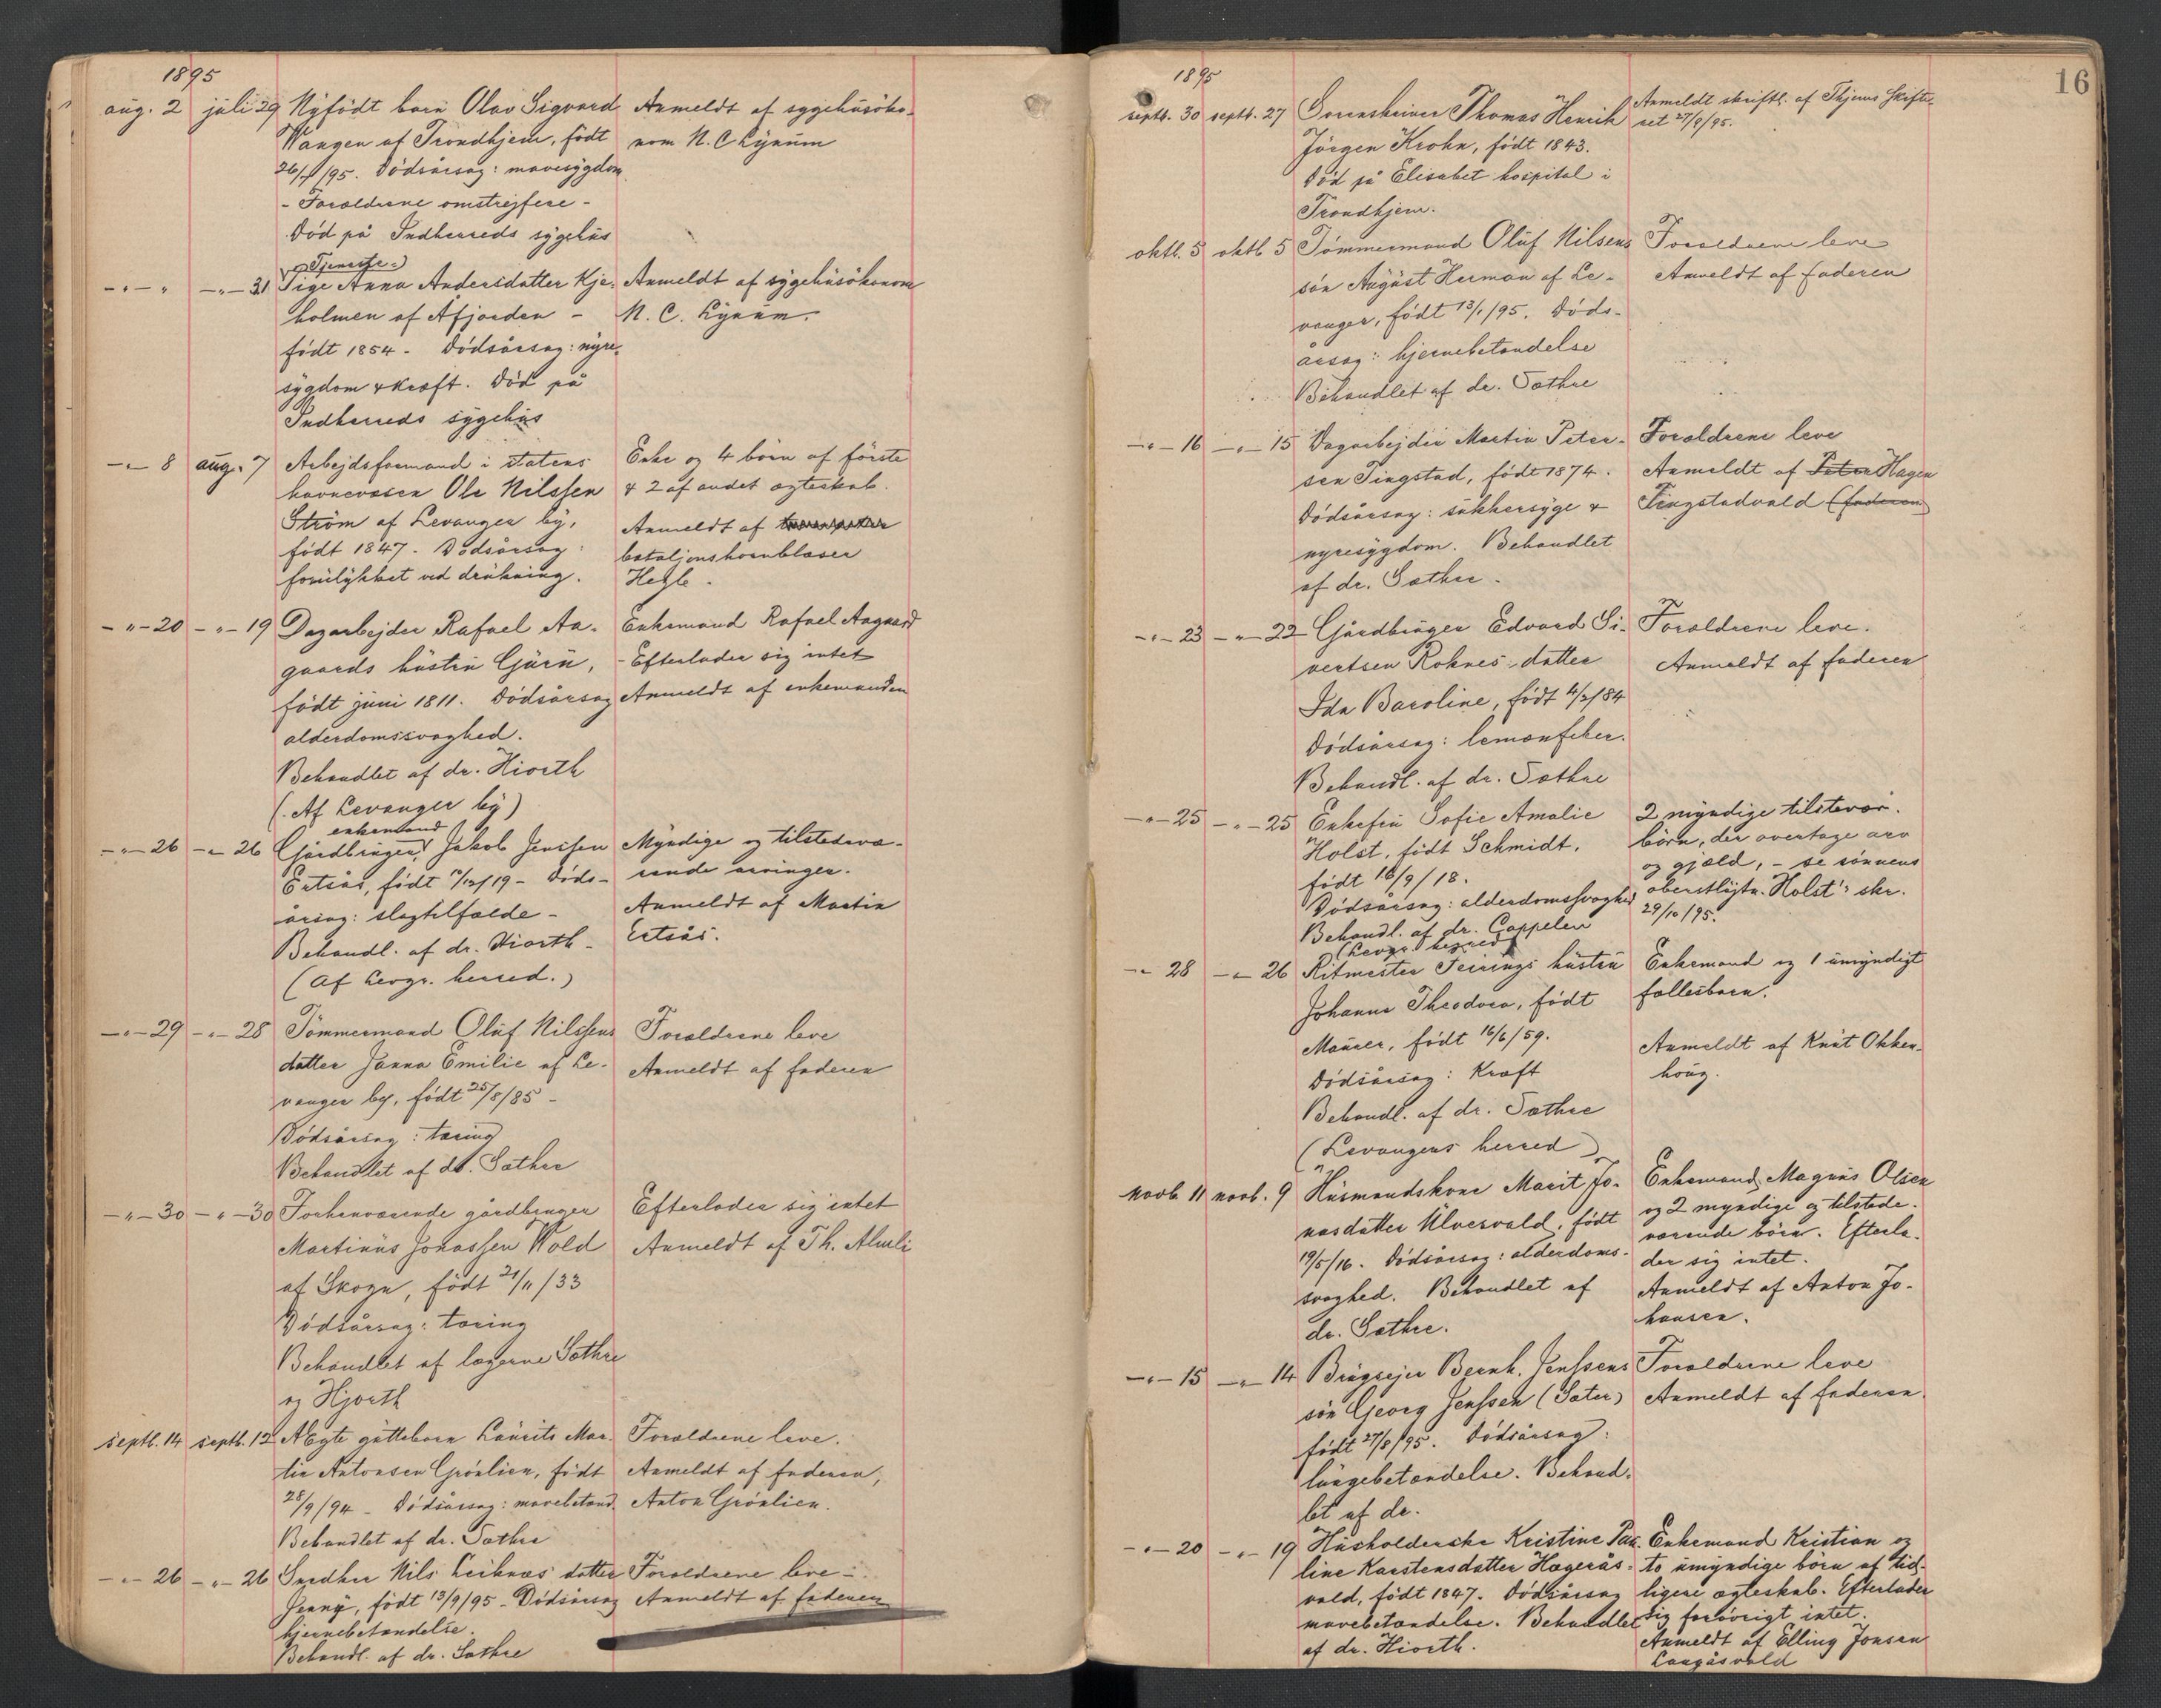 1895
aug. 2 juli 29 Nyfödt barn Olav Sigvard Anmeldt af sygehusöko-
Wangen af Trondhjem, född nom N. C Lynum
26/7/95. Dödsårsag: mavesygdom
- Forældrene omstrejfere -
Död på Indherreds sygehus
Tjeneste-
-"- " -"- 31 Pige Anna Andersdatter Kje- Anmeldt af sygehusökonom
holmen af Åfjorden - N. C. Lynum.
födt 1854 - Dödsårsag: nyre-
sygdom & kræft. Död på
Indherreds sygehus
-"- 8 aug. 7 Arbejdsformand i statens Enke og 4 börn af förste
havnevæsen Ole Nilssen & 2 af andet ægteskab.
Ström af Levanger by, Anmeldt af
födt 1847. Dödsårsag: bataljonshornblæser
forulykket ved drukning. Hegle.
-"- 20 -"- 19 Dagarbejder Rafael Aa- Enkemand Rafael Aagaard
gaards hustru Guru, - Efterlader sig intet
födt juni 1811. Dödsårsag Anmeldt af enkemanden
alderdomssvaghed.
Behandlet af dr. Hiorth
(Af Levanger by)
enkemand
-"- 26 -"- 26 Gårdbruger Jakob Jenssen Myndige og tilstedevæ-
Ertsås, födt /12/19 - Döds- rende arvinger.
årsag: slagtilfælde - Anmeldt af Martin
Behandl. af dr. Hiorth - Ertsås.
(Af Levgr. herred.)
-"- 29 -"- 28 Tömmermand Oluf Nilssens Forældrene leve
datter Janna Emilie af Le- Anmeldt af faderen
vanger by, födt 25/8/85 -
Dödsårsag: tæring
Behandlet af dr. Sæthre
-"- 30 -"- 30 Forhenværende gårdbruger Efterlader sig intet
Martinus Jonassen Wold Anmeldt af Th. Almli
af Skogn, födt 21/11/33
Dödsårsag: tæring
Behandlet af lægerne Sæthre
og Hjorth
septb. 14 septb. 12 Ægte gutteborn Laurits Mar- Forældrene leve.
tin Antonsen Grönlien, födt Anmeldt af faderen,
28/9/94 - Dödsårsag: mavebetænd. Anton Grönlien.
Behandlet af dr. Sæthre
-"- 26 -"- 26 Snedker Nils Leiknæs' datter Forældrene leve -
Jenny, födt 13/9/95 - Dödsårsag Anmeldt af faderen
hjernebetændelse.
Behandl. af dr. Sæthre
16
1895
septb. 30 septb. 27 Sorenskriver Thomas Henrik Anmeldt skriftl. af Thjems skifte-
Jörgen Krohn, födt 1843. ret 27/9/95.
Död på Elisabet hospital i
Trondhjem.
oktb. 5 oktb 5 Tömmermand Oluf Nilsens Forældrene leve
sön August Herman af Le- Anmeldt af faderen
vanger, födt 13/1/95. Döds-
årsag: hjernebetændelse
Behandlet af dr. Sæthre
-"- 16 -"- 15 Dagarbejder Martin Peter- Forældrene leve
sen Tingstad, födt 1874. Anmeldt af Peter Hagen
Dödsårsag: sukkersyge & Tingstadvald (faderen
nyresygdom. Behandlet
af dr. Sæthre.
-"- 23 -"- 22 Gårdbruger Edvard Si- Forældrene leve.
vertsen Roknes' datter Anmeldt af faderen
Ida Baroline, födt 4/2/84
Dödsårsag: lemonfeber.
Behandl. af dr. Sæthre
-"- 25 -"- 25 Enkefru Sofie Amalie 2 myndige tilstevær.
Holst, födt Schmidt, börn, der overtage arv
födt 16/9/18. og gjæld, - se sönnens
Dödsårsag: alderdomssvaghed oberstlöjtn. Holst's skr.
Behandl. af dr. Cappelen 29/10/95.
(Levgr. herred)
-"- 28 -"- 26 Ritmester Feirings hustru Enkemand og 1 umyndigt
Johanne Theodora, födt fællesbarn.
Maurer, födt 16/6/59. Anmeldt af Knut Okken-
Dödsårsag: Kræft houg.
Behandl. af dr. Sæthre
(Levangers herred)
novb 11 novb. 9 Husmandskone Marit Jo- Enkemand Magnus Olsen
nasdatter Ulvesvald, födt og 2 myndige og tilstede-
19/5/16. Dödsårsag: alderdoms- værende börn. Efterla-
svaghed. Behandlet af der sig intet.
dr. Sæthre. Anmeldt af Anton Jo-
hansen.
-"- 15 -"- 14 Brugsejer Bernh. Jenssens Forældrene leve
sön Georg Jenssen (Sæter) Anmeldt af faderen.
födt 27/8/95. Dödsårsag:
lungebetændelse. Behand-
let af dr.
-"- 20 -"- 19 Husholderske Kristine Pau- Enkemand Kristian og
line Karstensdatter Hagerås- to umyndige börn af tid-
vald, födt 1847. Dödsårsag ligere ægteskab. Efterlader
mavebetændelse. Behandlet sig forövrigt intet.
af dr. Hiorth. Anmeldt af Elling Jonsen
Langåsvald